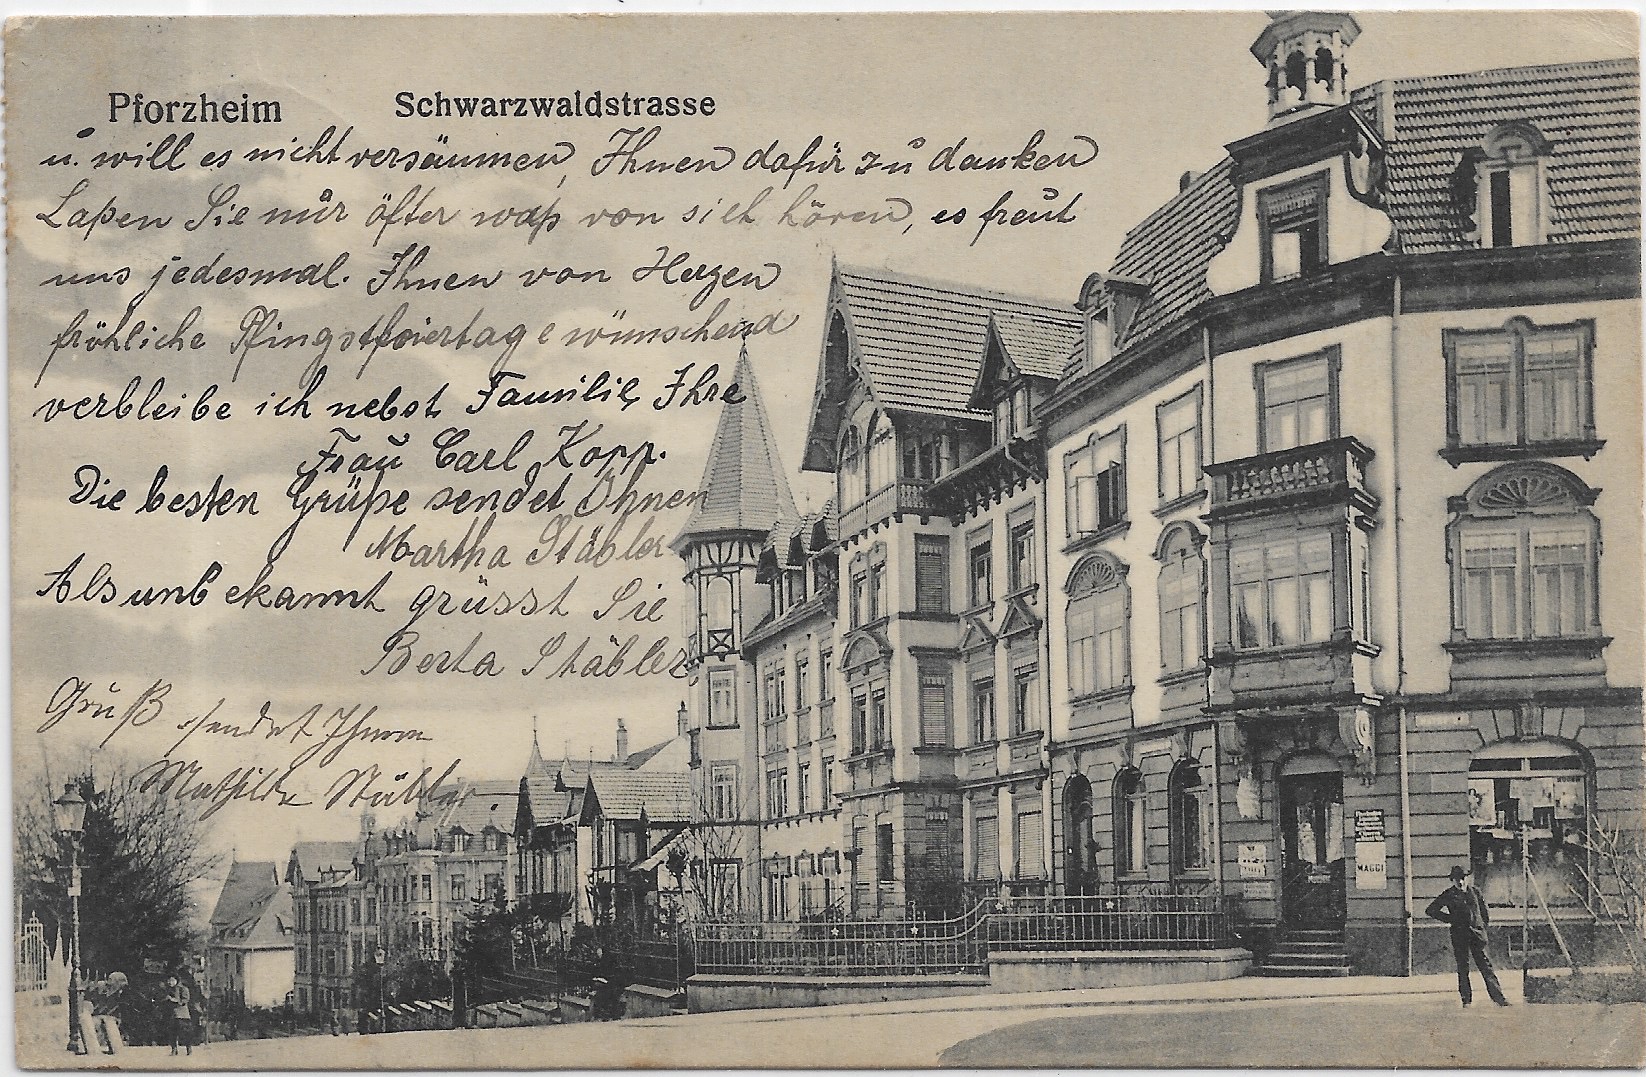 Pforzheim Schwarzwaldstrasse
u. will es nicht versäumen, Ihnen dafür zu danken
Laßen Sie nur öfter waß von sich hören, es freut
uns jedesmal. Ihnen von Herzen
fröhliche Pfingstfeiertage wünschend
verbleibe ich nebst Familie, Ihre
Frau Carl Kopp.
Die besten Grüße sendet Ihnen
Martha Stäbler
Als unbekannt grüsst Sie
Berta Stäbler
Gruß sendet Ihnen
Mathilde Stäbler.
MAGGI